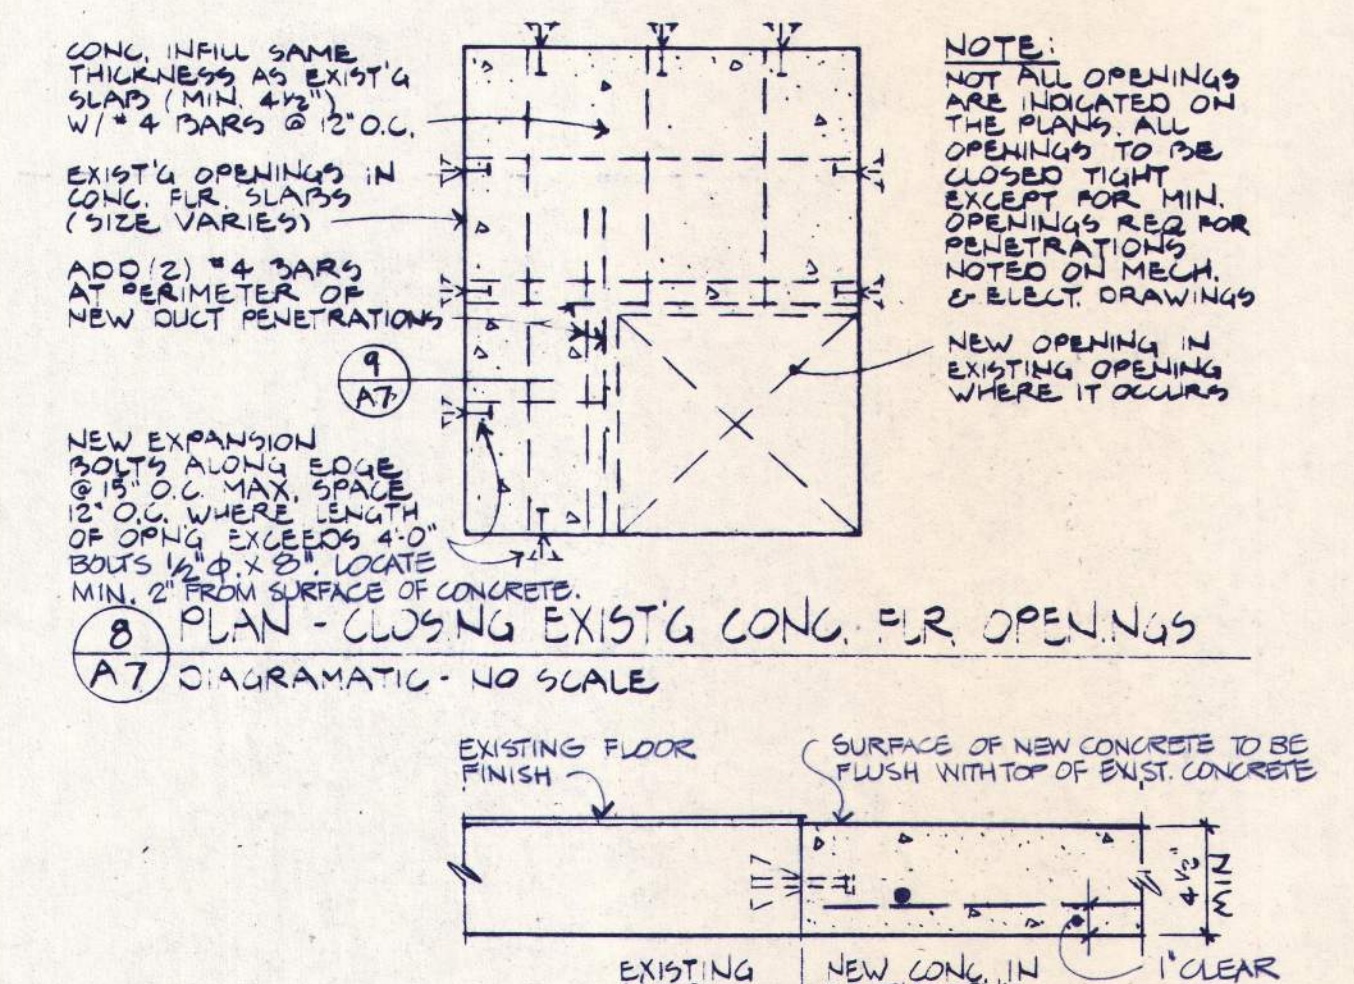 CONC. INFILL SAME
THICKNESS AS EXIST'G
SLAB (MIN. 4½")
W/ #4 BARS @ 12" O.C.
EXIST'G OPENINGS IN
CONC. FLR. SLABS
(SIZE VARIES)
ADD (2) #4 BARS
AT PERIMETER OF
NEW DUCT PENETRATIONS
9
A7
NEW EXPANSION
BOLTS ALONG EDGE
@ 15" O.C. MAX. SPACE
12" O.C. WHERE LENGTH
OF OPN'G EXCEEDS 4'-0"
BOLTS ½"φ. X 8". LOCATE
MIN. 2" FROM SURFACE OF CONCRETE.
NOTE:
NOT ALL OPENINGS
ARE INDICATED ON
THE PLANS. ALL
OPENINGS TO BE
CLOSED TIGHT
EXCEPT FOR MIN.
OPENINGS REQ FOR
PENETRATIONS
NOTED ON MECH.
& ELECT. DRAWINGS
NEW OPENING IN
EXISTING OPENING
WHERE IT OCCURS
8
A7
PLAN - CLOSING EXIST'G CONC. FLR. OPENINGS
DIAGRAMATIC - NO SCALE
EXISTING FLOOR
FINISH
SURFACE OF NEW CONCRETE TO BE
FLUSH WITH TOP OF EXIST. CONCRETE
4½"
MIN
EXISTING
NEW CONC. IN
1" CLEAR